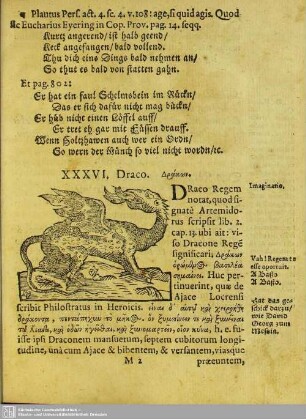 ¶ Plautus Pers. act. 4. sc. 4. v. 108: age, si quid agis. Quod
sic Eucharius Eyering in Cop. Prov. pag. 14. seqq.
Kurtz angerend/ ist bald geend/
Keck angefangen/ bald vollend.
Thu dich eins Dings bald nehmen an/
So thut es bald von statten gahn.
Et pag. 802:
Er hat ein faul Schelmobein im Rückn/
Das er sich dafür nicht mag bückn/
Er hüb nicht einen Löffel auff/
Er tret eh gar mit Füssen drauff.
Wenn Holtzhawen auch wer ein Ordn/
So wern der Münch so viel nicht wordn/ec.
XXXVI, Draco. Δράκων.
Draco Regem
notat, quod si-
gnatè Artemido-
rus scripsit lib. 2.
cap. 13. ubi ait: vi-
so Dracone Regē
significari, Δράκων
σημαίνει. Huc per-
tinuerint, quæ de
Ajace Locrensi
scribit Philostratus in Heroicis.
h. e. fu-
isse ipsi Draconem mansuetum, septem cubitorum longi-
tudine, unà cum Ajace & bibentem, & versantem, viasque
M 2 præeuntem,
Imaginatio.
Vah! Regem te
esse oportuit.
A Basso
Hat das ge-
schickt darzu/
wie David
Georg zum
Messein.